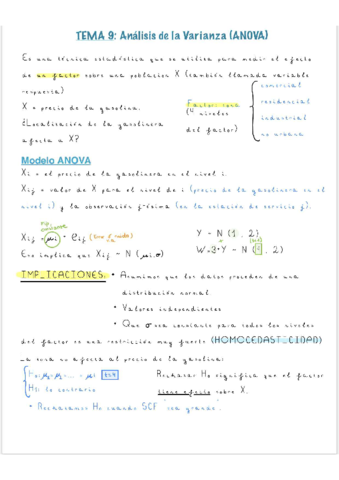 TEMA 9: Análisis de la Varianza (ANOVA)
Es una técnica estadística que se utiliza para medir el efecto
de un factor sobre una poblacion X (también llamada variable
respuesta)
X = precio de la gasolina.
¿Localización de la gasolinera
afecta a X?
Factor: zona
(4 niveles
del factor)
comercial
residencial
industrial
no urbana
Modelo ANOVA
Xi = el precio de la gasolinera en el nivel i.
Xij = valor de X para el nivel de i (precio de la gasolina en el
nivel i) y la observación j-ésima (en la estación de servicio j).
Xij = μi + eij
Y ~ N (1, 2)
Eso implica que Xij ~ N
W=3+Y ~ N
IMPLICACIONES: • Asumimos que los datos proceden de una
distribución normal
• Valores independientes
• Que σ sea constante para todos los niveles
del factor es una restricción muy fuerte (HOMOCEDASTICIDAD)
La zona no afecta al precio de la gasolina:
H₁: lo contrario
Rechazar Ho significa que el factor
tiene efecto sobre X.
• Rechazamos Ho cuando SCF "sea grande".